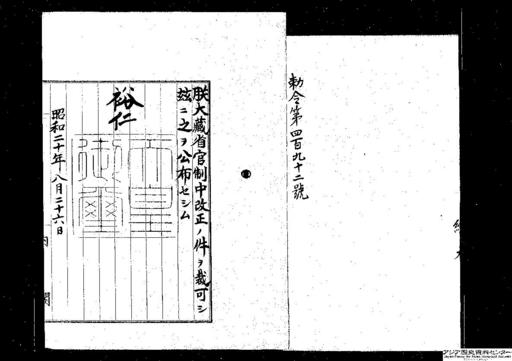 勅令第四百九十二號
朕大藏省官制中改正ノ件ヲ裁可シ
玆ニ之ヲ公布セシム
裕仁
天皇御璽
昭和二十年八月二十六日
内閣
アジア歴史資料センター
Japan Center for Asian Historical Records